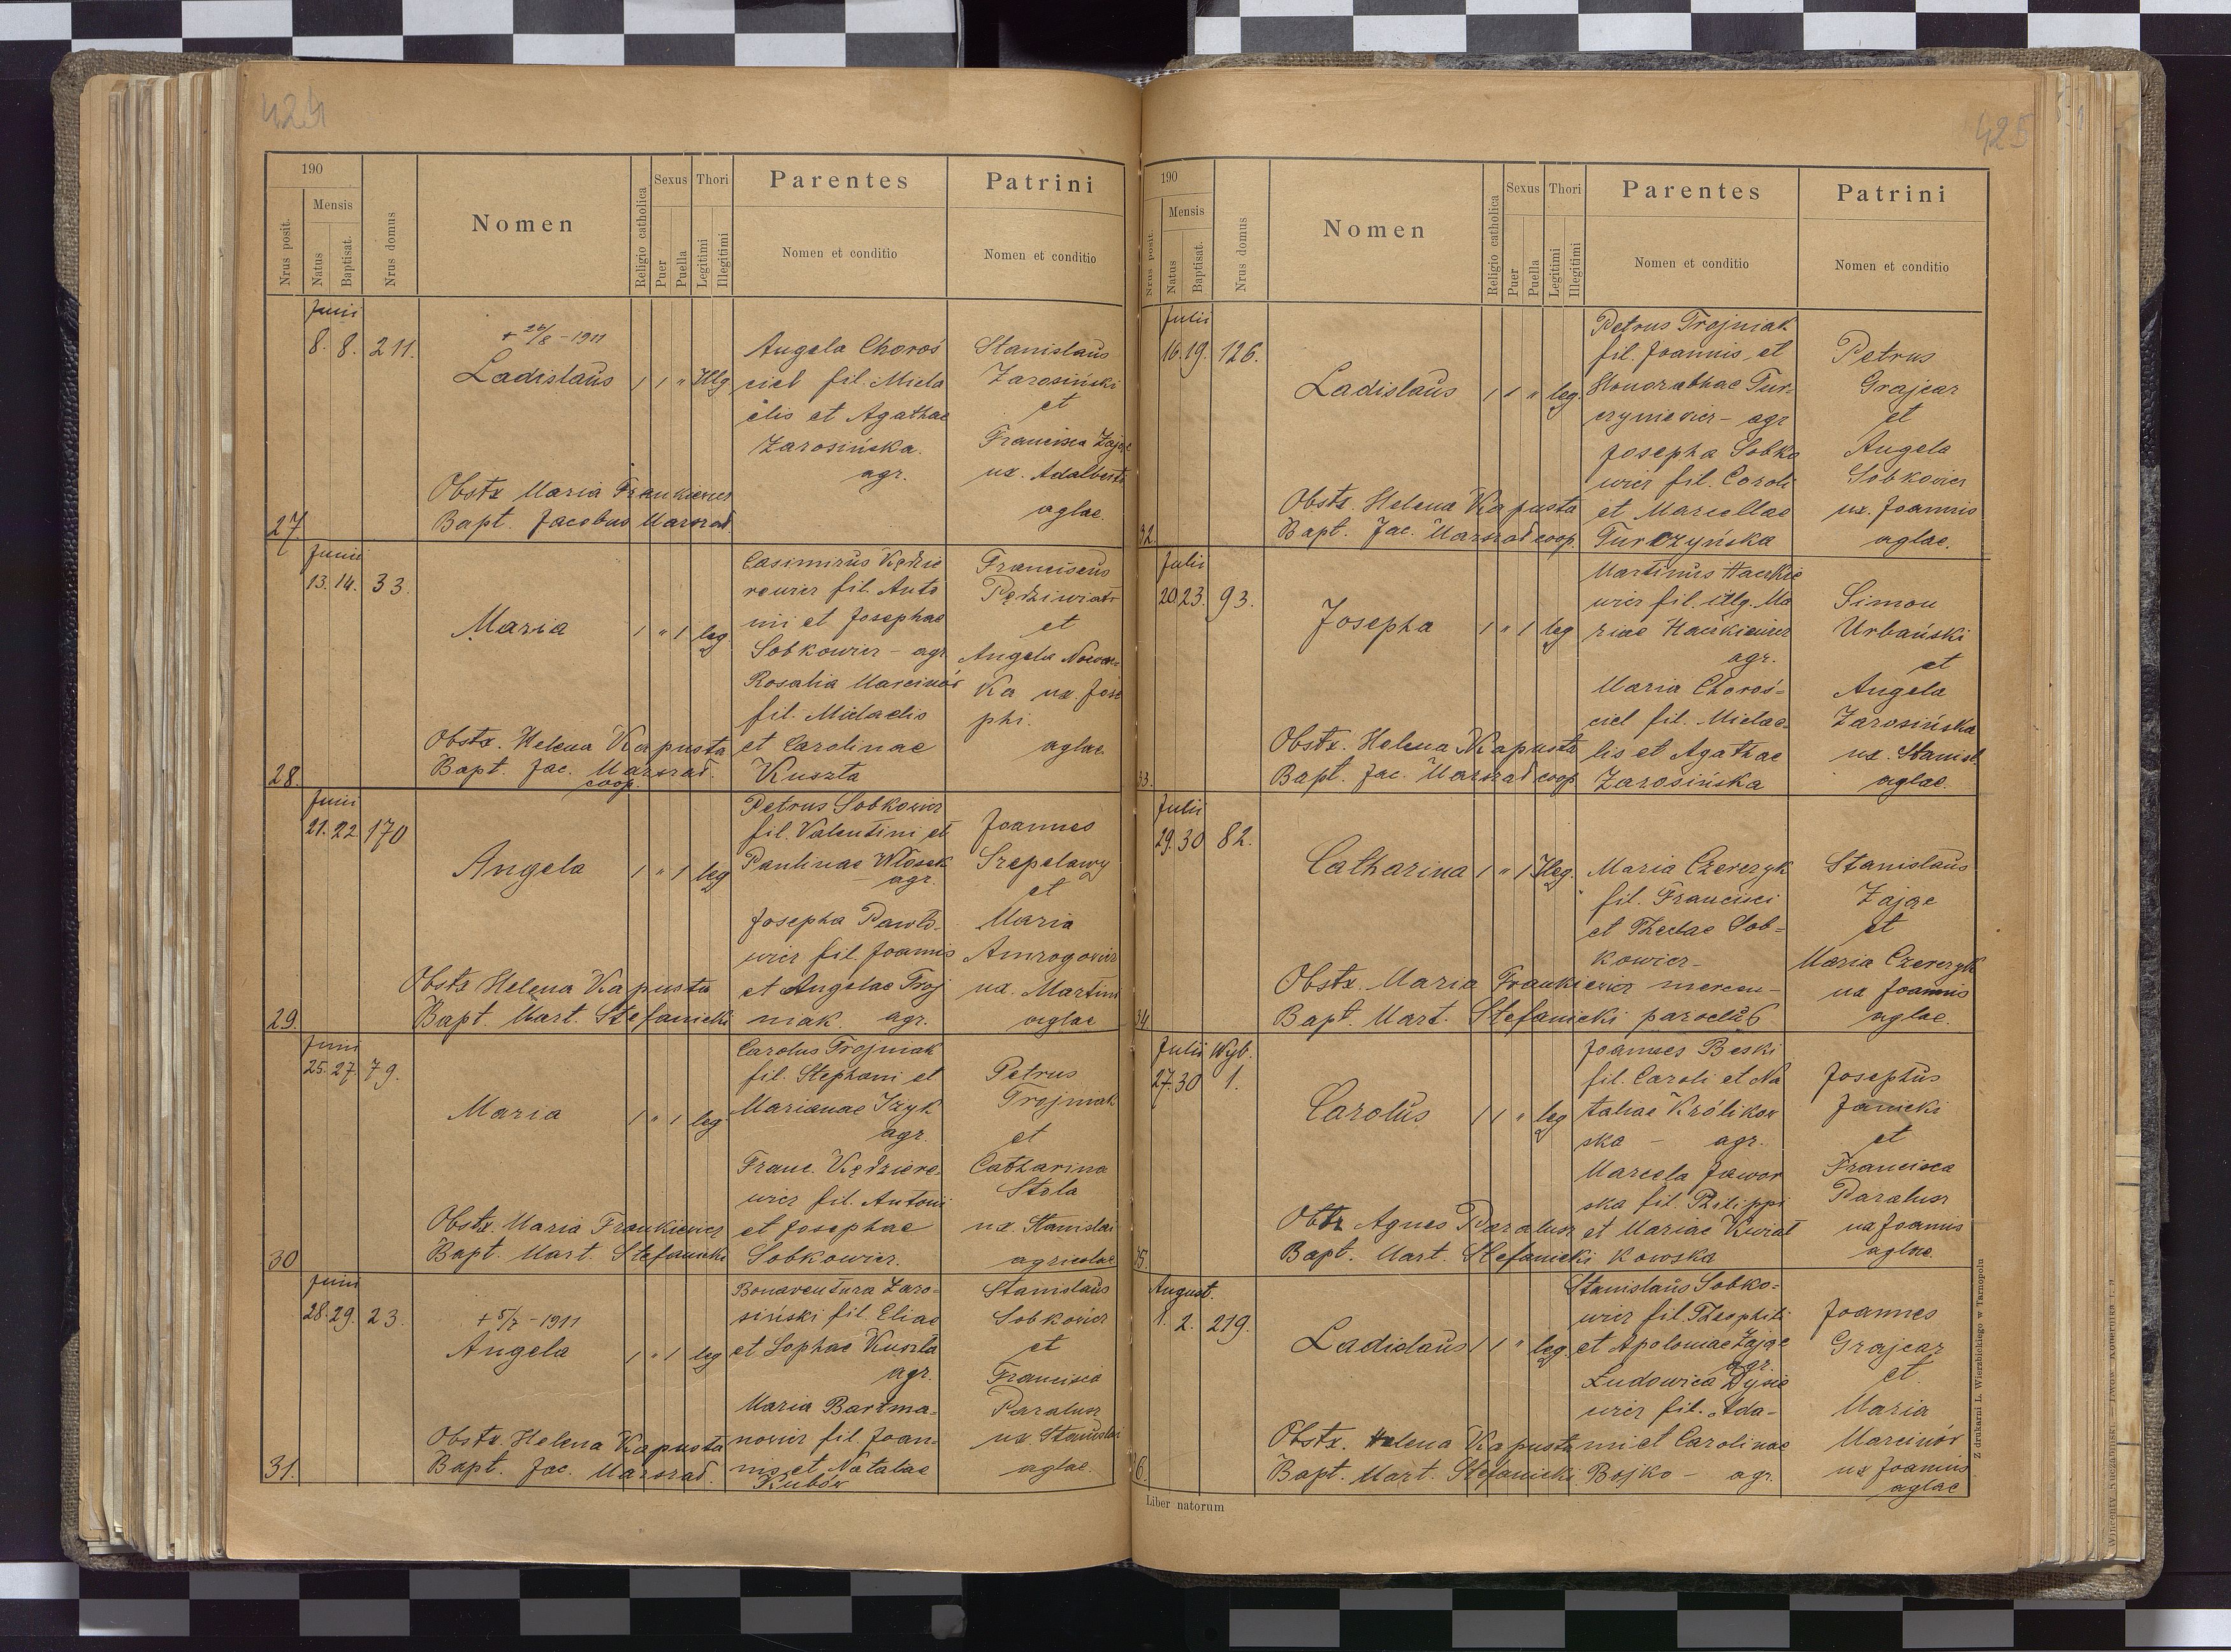 424
190
Nrus posit.
Mensis
Natus
Baptisat.
Nrus domus
Nomen
Religio catholica
Sexus
Puer
Puella
Thori
Legitimi
Illegitimi
Parentes
Nomen et conditio
Patrini
Nomen et conditio
27
Junii
8. 8. 211.
+ 26/8 - 1911
Ladislaus
1 1 " Illg
Obstx Maria Frankiewicz
Bapt. Jacobus Marszad.
Angela Choroś
ciel fil. Micha
elis et Agathae
Zarosińska.
agr.
Stanislaus
Zarosiński
et
Francisca Zając
ux. Adalberti
aglae.
28.
Junii
13. 14. 33.
Maria
1 " 1 leg
Obstx. Helena Kapusta
Bapt. Jac. Marszad.
coop.
Casimirus Kędzie
rewicz fil. Anto
ni et Josephae
Sobkowicz - agr
Rosalia Marcinów
fil. Michaelis
et Carolinae
Kuszta
Franciscus
Pędziwiatr
et
Angela Nowac=
Ka ux. Jose
phi.
aglae
29.
Junii
21. 22 170
Angela
1 " 1 leg
Obstx Helena Kapusta
Bapt. Mart. Stefanicki
Petrus Sobkowicz
fil. Valentini et
Paulinae Włosek
agr.
Josepha Pawło-
wicz fil. Joannis
et Angelae Troj
niak agr.
Joannes
Szepelawy
et
Maria
Amrogowicz
ux. Martini
aglae
30
Junii
25. 27. 79.
Maria
1 " 1 leg
Obstx. Maria Frankiewicz
Bapt. Mart. Stefanicki
Carolus Trojniak
fil. Stephani et
Marianae Izyk
agr.
Franc. Kędziere-
wicz fil. Antoni
et Josephae
Sobkowicz.
Petrus
Trojniak
et
Catharina
Stola
ux. Stanislai
agricolae
31.
Junii
28. 29. 23.
+ 5/7 - 1911
Angela
1 " 1 leg
Obstx. Helena Kapusta
Bapt. Jac. Marszad.
Bonaventura Zaro-
siński fil. Eliae
et Sophae Kuszta
agr.
Maria Bartma-
nowicz fil. Joan-
nis et Nataliae
Kubów
Stanislaus
Sobkowicz
et
Francisca
Paralusz
ux. Stanislai
aglae.
425
190
Nrus posit.
Mensis
Natus
Baptisat.
Nrus domus
Nomen
Religio catholica
Sexus
Puer
Puella
Thori
Legitimi
Illegitimi
Parentes
Nomen et conditio
Patrini
Nomen et conditio
32.
Julii
16. 19. 126.
Ladislaus
1 1 " leg.
Obstx. Helena Kapusta
Bapt. Jac. Marszad coop.
Petrus Trojniak
fil. Joannis et
Honorathae Tur-
czyniewicz - agr
Josepha Sobko
wicz fil. Caroli
et Marcellae
Turczyńska
Petrus
Grajcar
et
Angela
Sobkowicz
ux. Joannis
aglae.
33.
Julii
20. 23. 93.
Josepha
1 " 1 leg
Obstx. Helena Kapusta
Bapt. Jac. Marszad coop.
Martinus Hackie
wicz fil. illg. Ma
riae Hackiewicz
agr.
Maria Choroś-
ciel fil. Michae-
lis et Agathae
Zarosińska
Simon
Urbański
et
Angela
Zarosińska
ux. Stanisl.
aglae.
34
Julii
29. 30 82.
Catharina
1 " 1 Illeg.
Obstx. Maria Frankiewicz mercen-
Bapt. Mart. Stefanicki parochus
Maria Czerczyk
fil. Francisci
et Theclae Sob=
kowicz-
Stanislaus
Zając
et
Maria Czerczyk
ux Joannis
aglae.
35.
Julii Wyb.
27. 30 1.
Carolus
1 1 " leg
Obtx Agnes Paralusz
Bapt. Mart. Stefanicki
Joannes Beski
fil. Caroli et Na
taliae Królikow
ska - agr.
Marcela Jawor
ska fil. Philippi
et Mariae Kwiat
kowska
Josephus
Janicki
et
Francisca
Paralusz
ux Joannis
aglae
36.
August.
1. 2. 219.
Ladislaus
1 1 " leg.
Obstx. Helena Kapusta
Bapt. Mart. Stefanicki
Stanislaus Sobko-
wicz fil. Theophili
et Apoloniae Zając
agr.
Ludowica Dysie
wicz fil. Ada-
mi et Carolinae
Bojko - agr.
Joannes
Grajcar
et.
Maria
Marcinów
ux Joannis
aglae
Liber natorum
Z drukarni L. Wierzbickiego w Tarnopolu